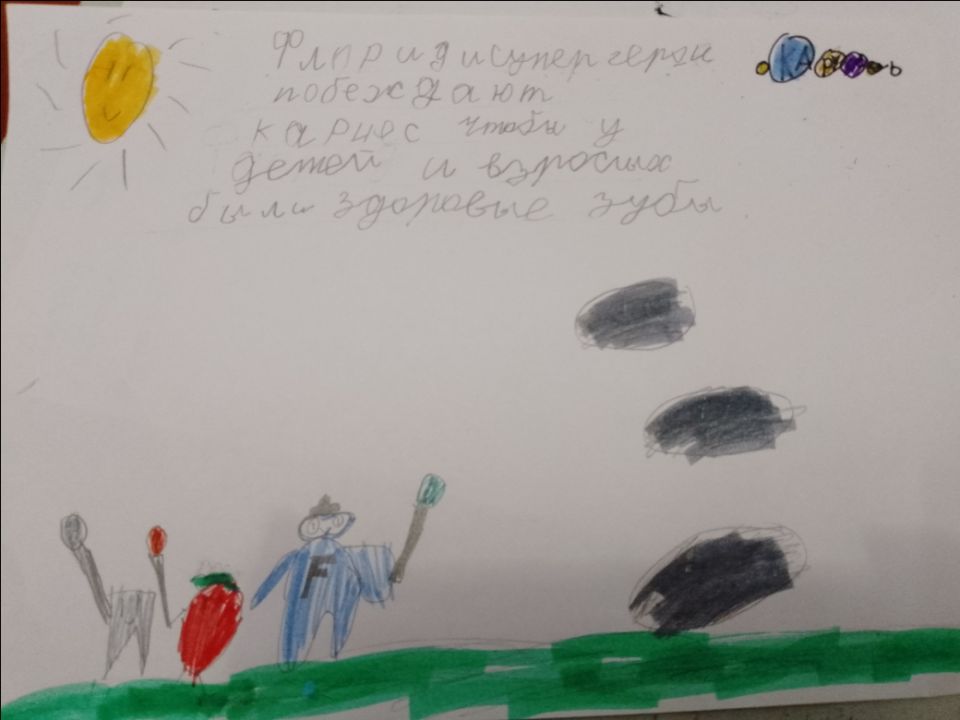 Фларидисупергерои
побеждают
кариес чтобы у
детей и взрослых
были здоровые зубы
F